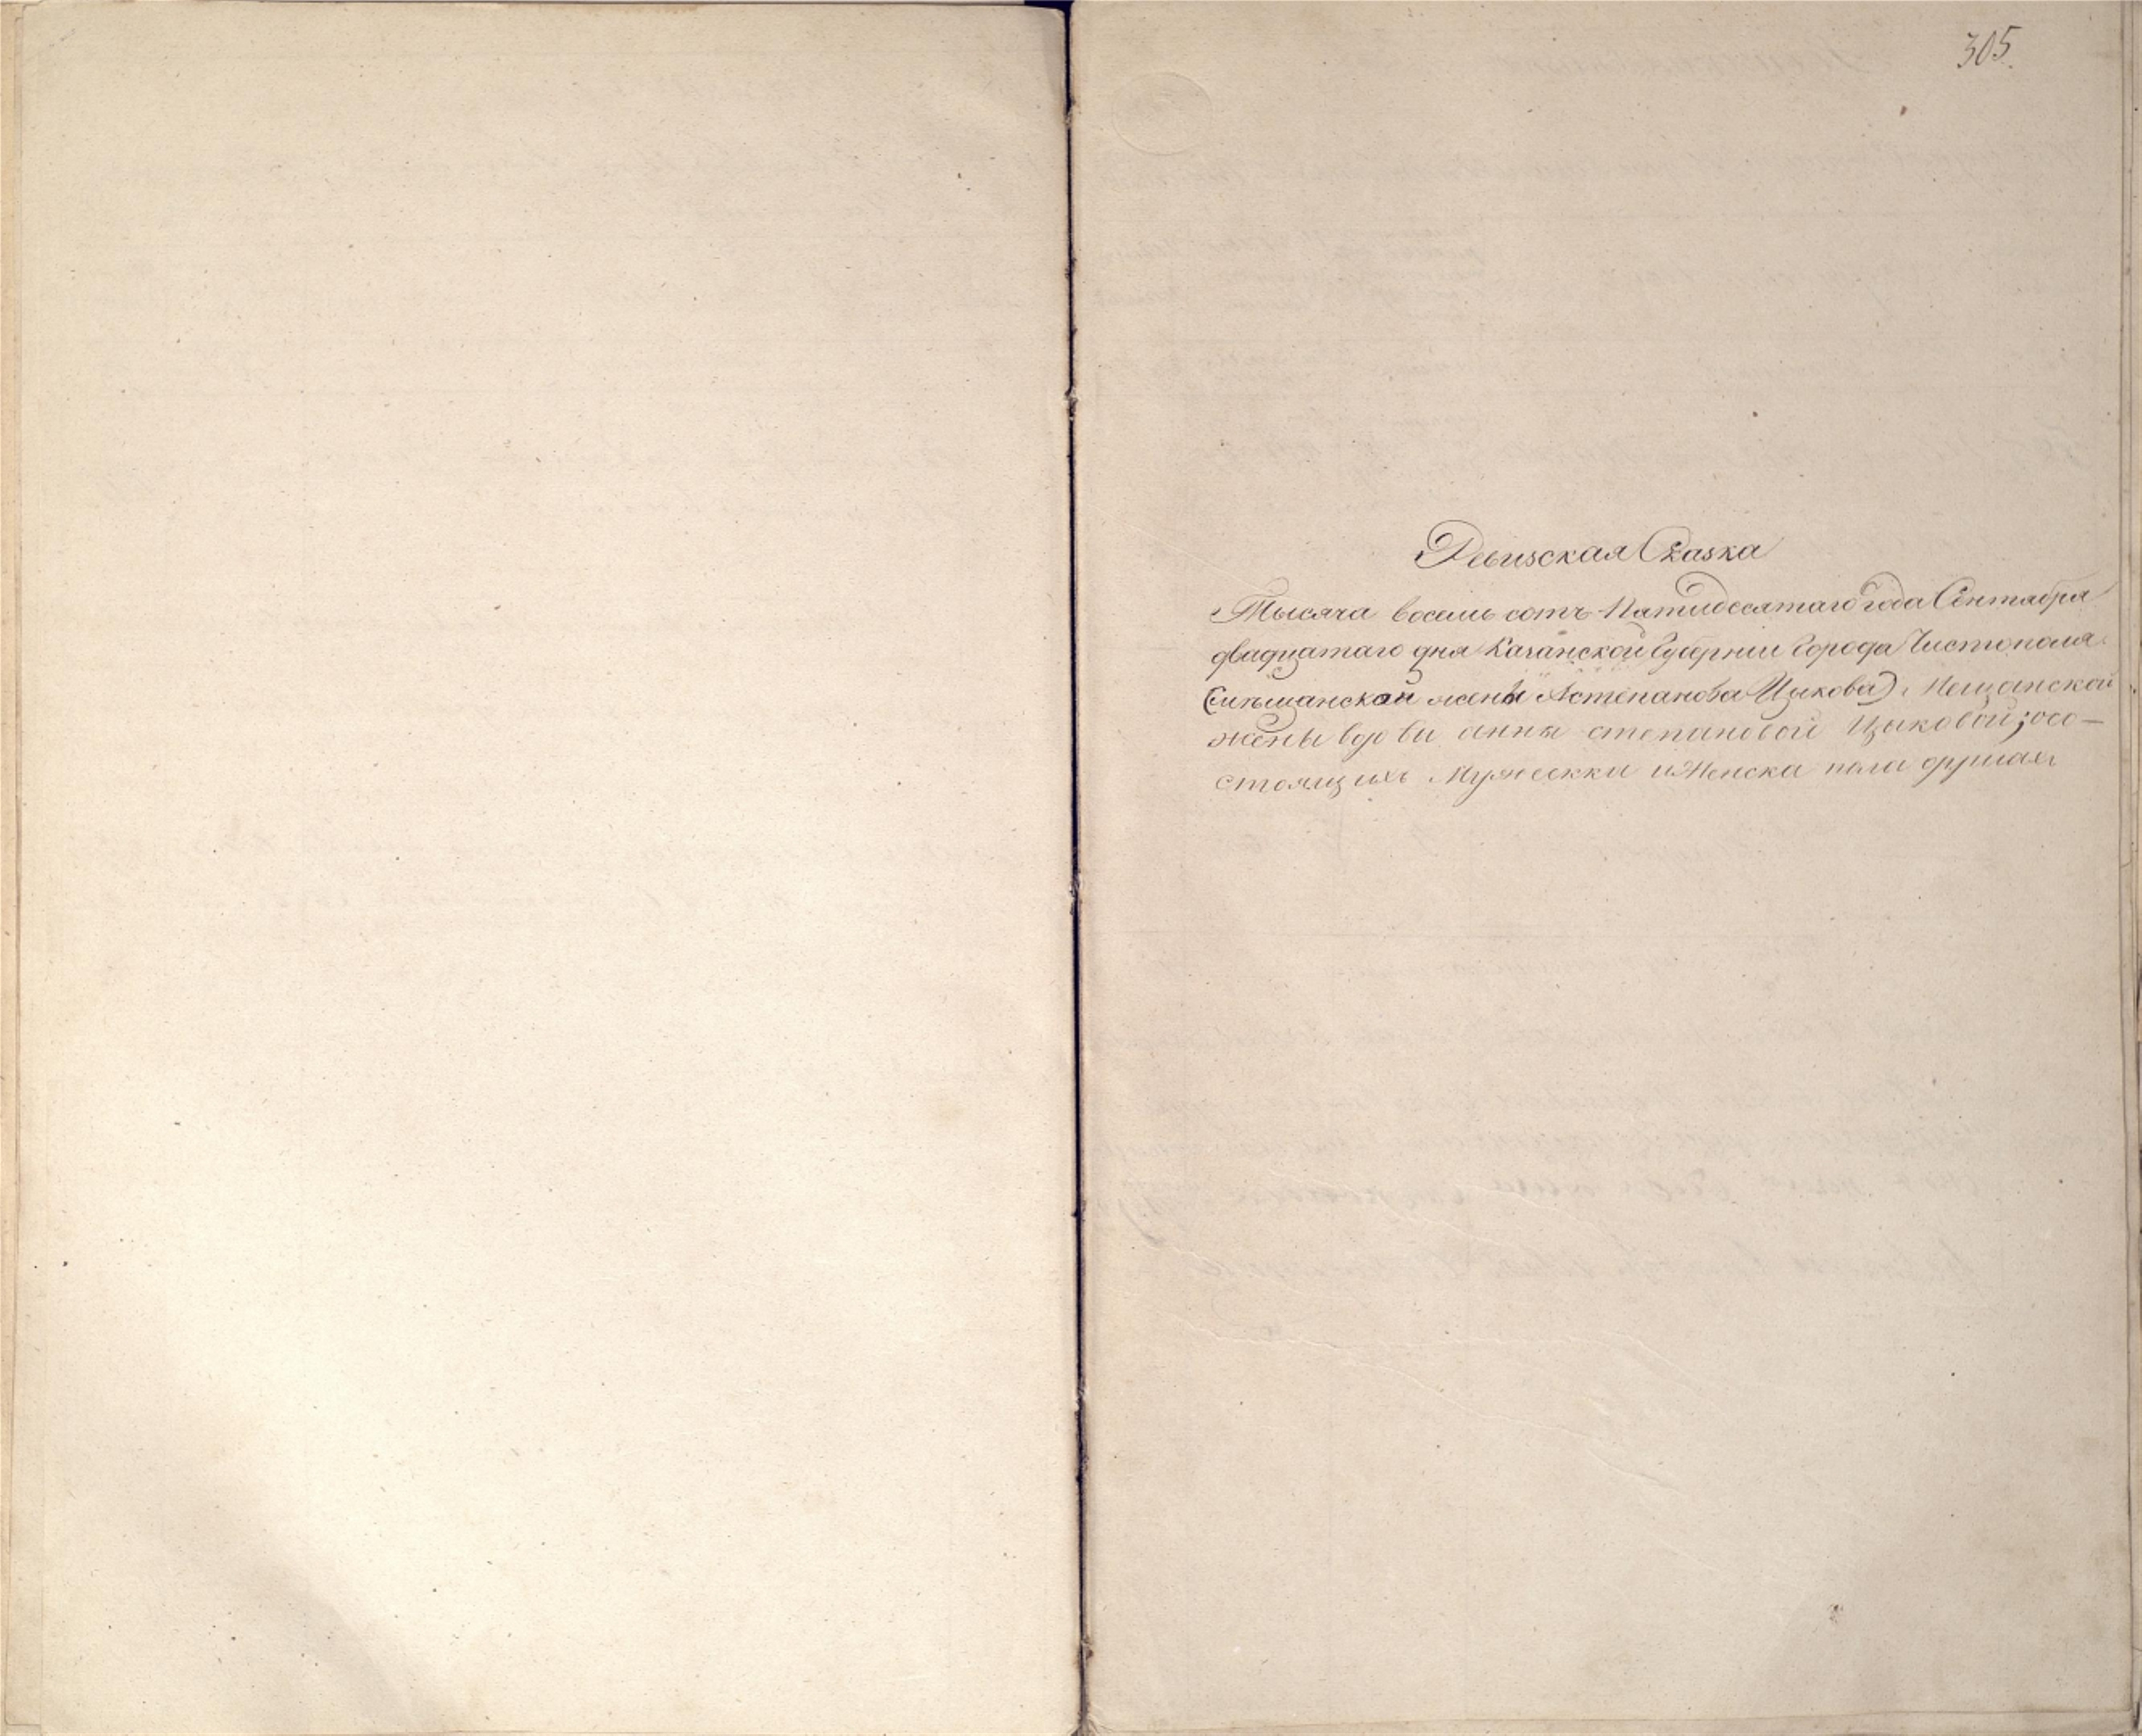 305.
Ревизская Сказка
Тысяча восемь сотъ Пятидесятаго года Сентября
двадцатаго дня Казанской Губернии Города Чистополя
(мещанской жены Астепанова Цыкова) Мещанской
жены вдовы анны степановой Цыковой; о со-
стоящихъ Мужеска и Женска пола душах